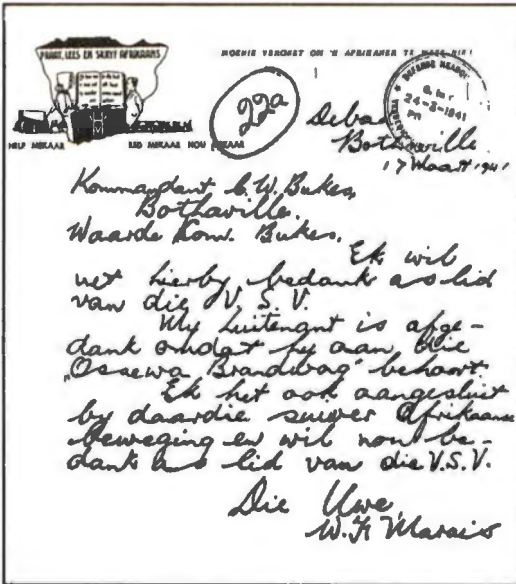 PRAAT, LEES EN SKRYF AFRIKAANS
MOENIE VERGEET OM 'N AFRIKANER TE WEES NIE!
HELP MEKAAR
RED MEKAAR HOU MEKAAR
22a
DEFENCE HEADQ
24-3-1941
PM
Bothaville
17 Maart 1941
Kommandant C. W. Bukes,
Bothaville.
Waarde Kom. Bukes.
Ek wil
net hierby bedank as lid
van die V. S. V.
My Luitenant is afge-
dank omdat hy aan die
„Ossewa Brandwag" behoort.
Ek het ook aangesluit
by daardie suiwer Afrikaanse
beweging en wil nou be-
dank as lid van die V.S.V.
Die Uwe,
W. H. Marais